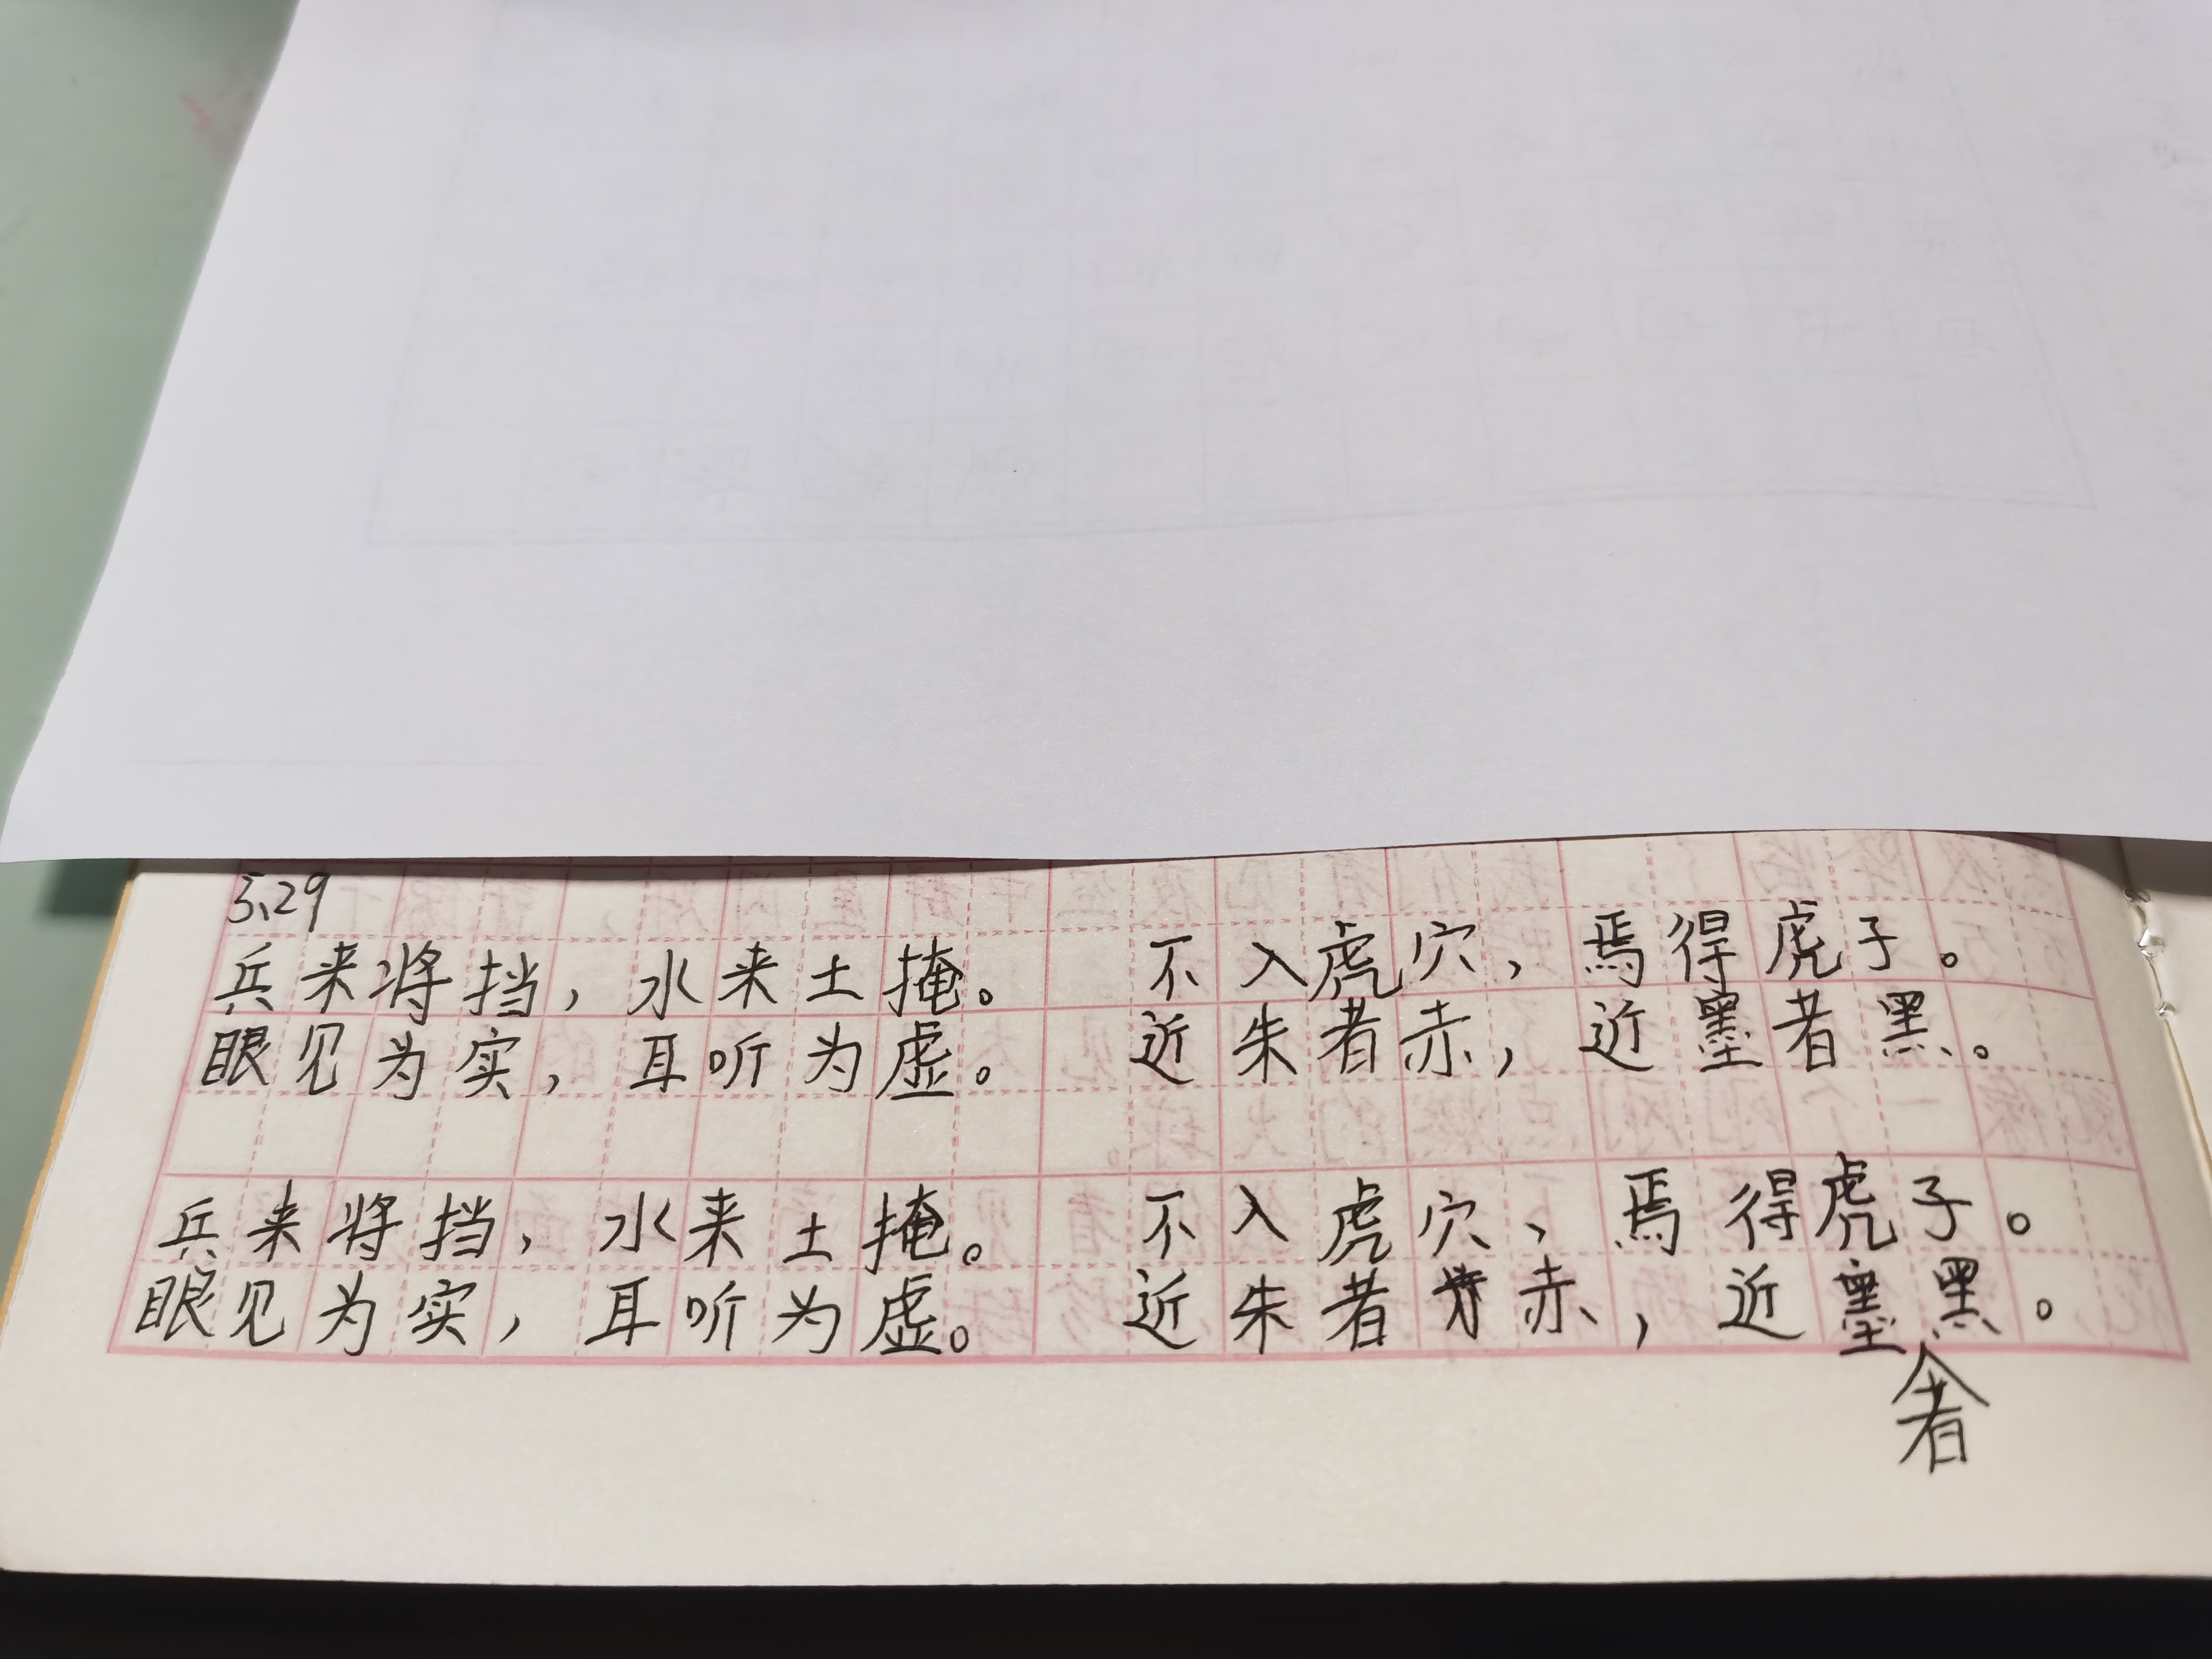 5.29
兵来将挡，水来土掩。 不入虎穴，焉得虎子。
眼见为实，耳听为虚。 近朱者赤，近墨者黑。
兵来将挡，水来土掩。 不入虎穴，焉得虎子。
眼见为实，耳听为虚。 近朱者赤，近墨者黑。